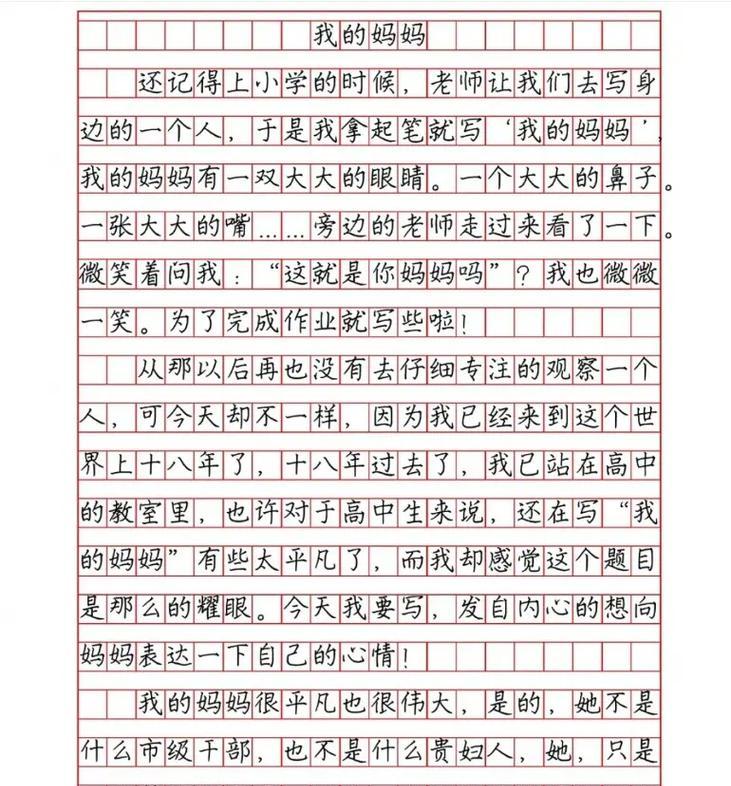 我的妈妈
还记得上小学的时候，老师让我们去写身
边的一个人，于是我拿起笔就写‘我的妈妈’，
我的妈妈有一双大大的眼睛。一个大大的鼻子。
一张大大的嘴……旁边的老师走过来看了一下。
微笑着问我：“这就是你妈妈吗”？我也微微
一笑。为了完成作业就写些啦！
从那以后再也没有去仔细专注的观察一个
人，可今天却不一样，因为我已经来到这个世
界上十八年了，十八年过去了，我已站在高中
的教室里，也许对于高中生来说，还在写“我
的妈妈”有些太平凡了，而我却感觉这个题目
是那么的耀眼。今天我要写，发自内心的想向
妈妈表达一下自己的心情！
我的妈妈很平凡也很伟大，是的，她不是
什么市级干部，也不是什么贵妇人，她，只是